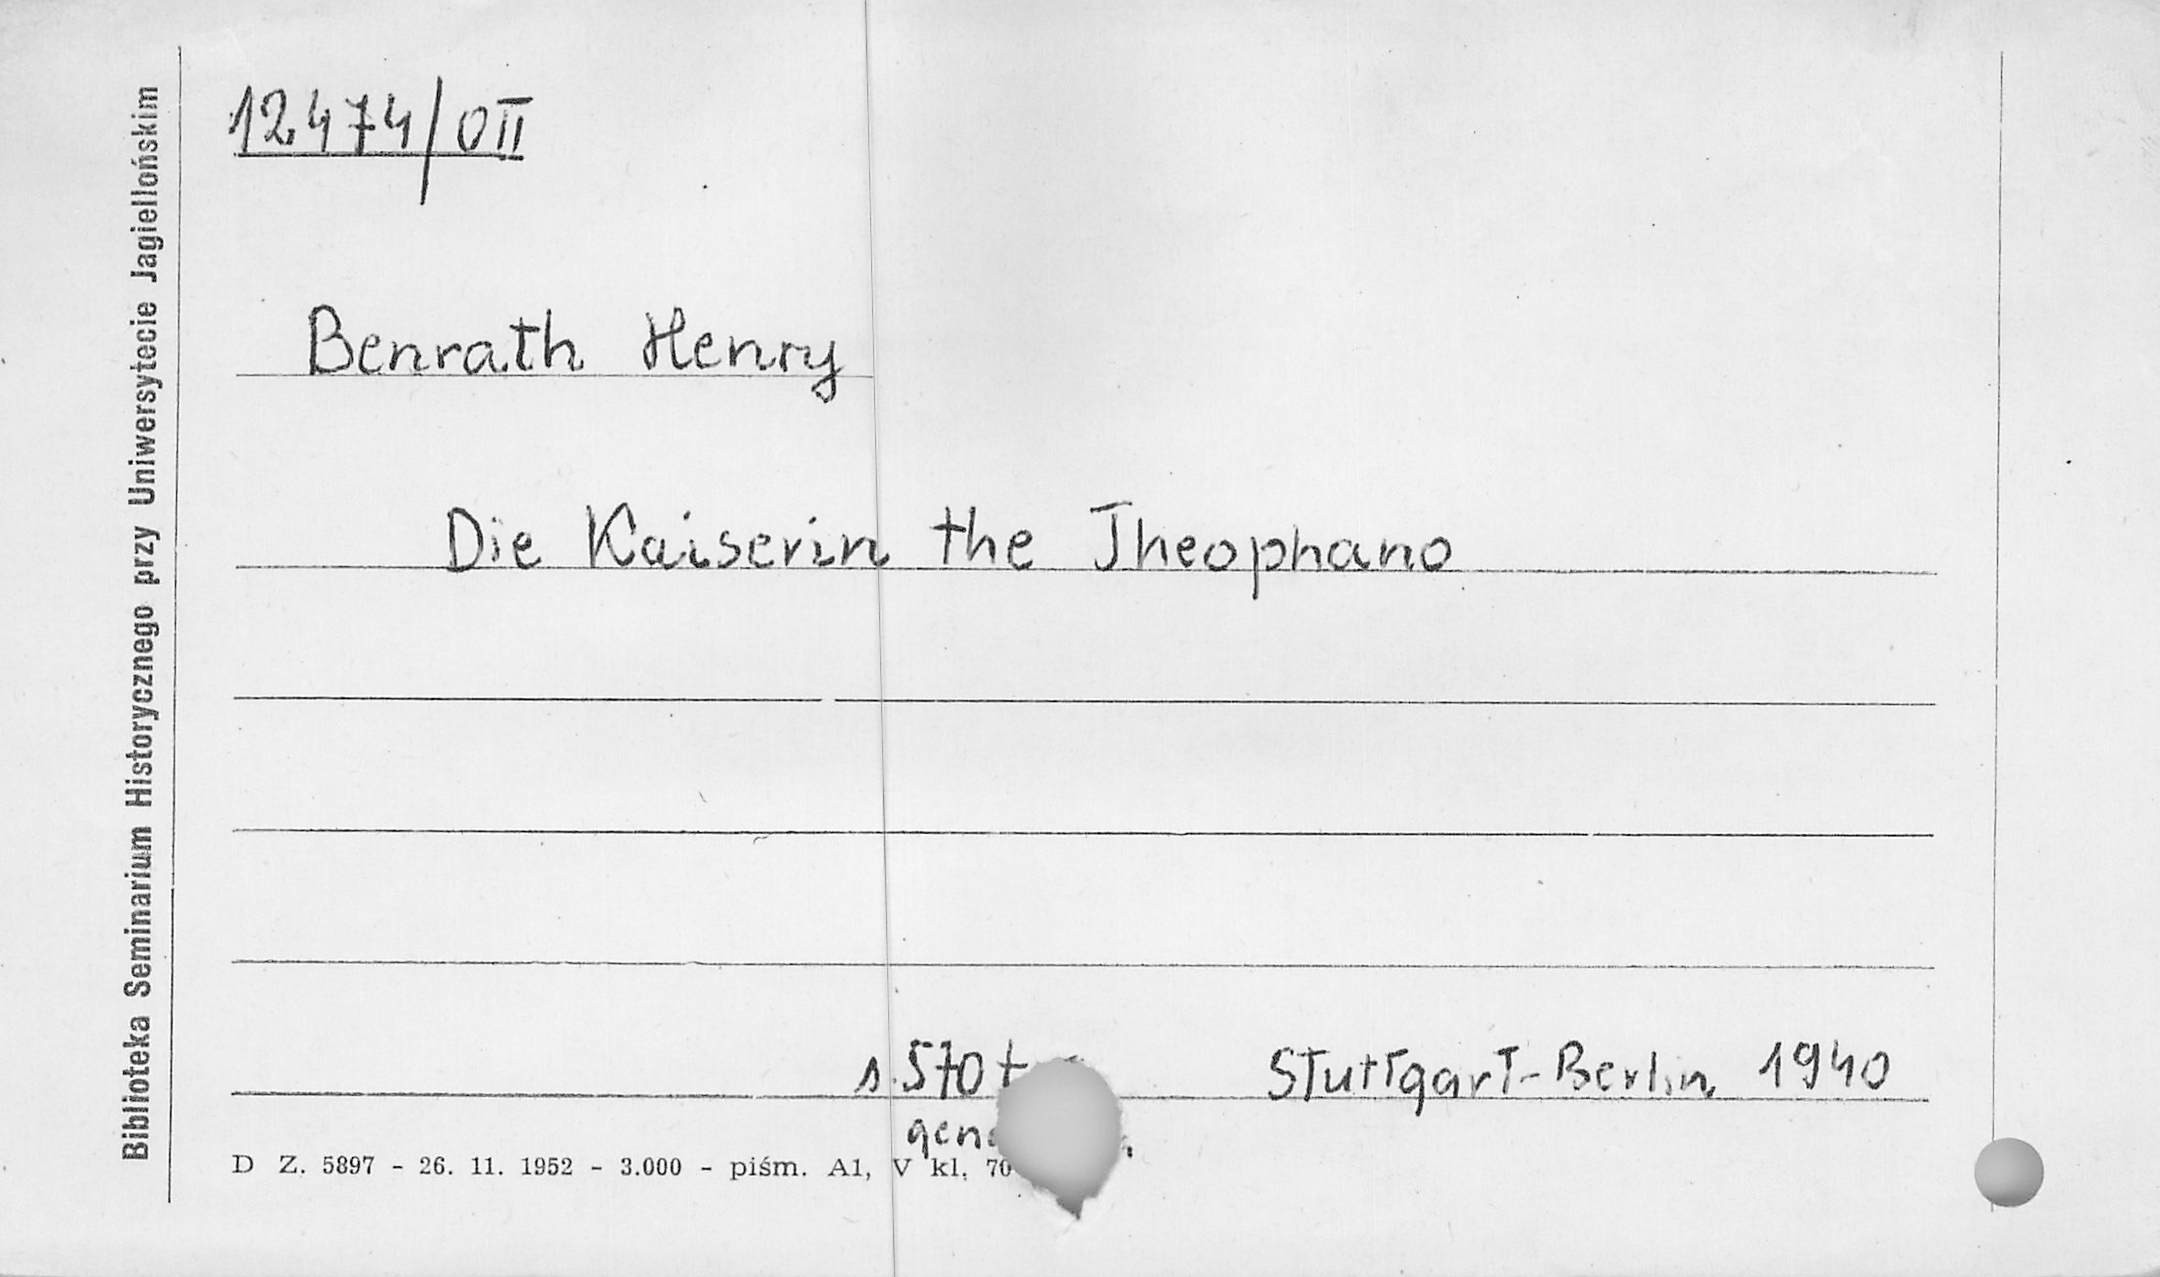 Biblioteka Seminarium Historycznego przy Uniwersytecie Jagiellońskim
12474/0II
Benrath Henry
Die Kaiserin the Theophano
s. 570 +
Stuttgart-Berlin 1940
D Z. 5897 - 26. 11. 1952 - 3.000 - piśm. A1, V kl. 70